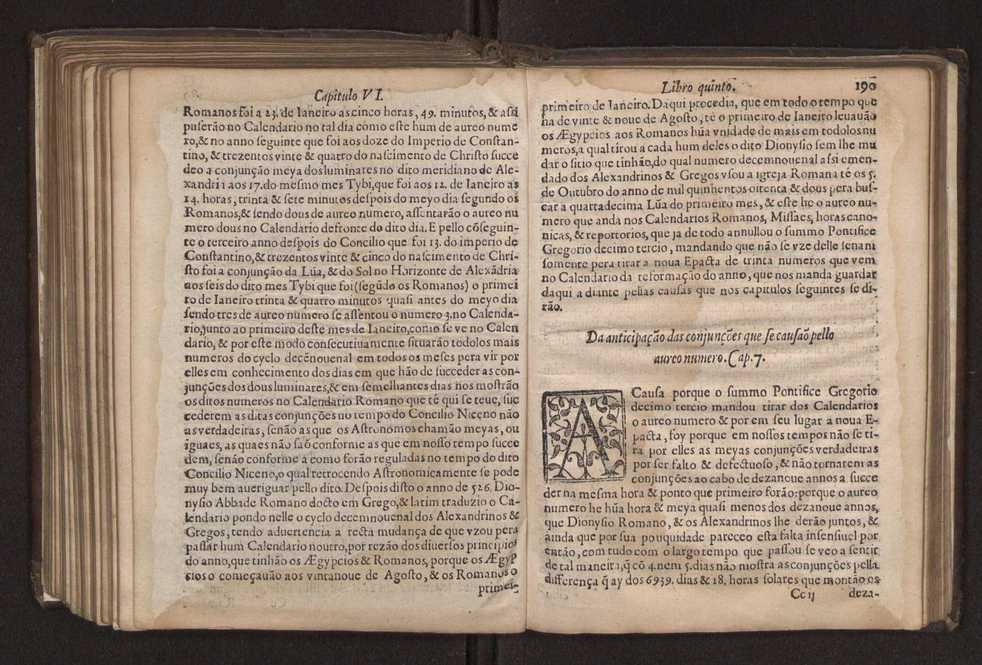 Capitulo VI.
Romanos foi a 23. de Ianeiro as cinco horas, 49. minutos, & assi
puserão no Calendario no tal dia como este hum de aureo nume
ro, & no anno seguinte que foi aos doze do Imperio de Constan-
tino, & trezentos vinte & quatro do nascimento de Christo succe
deo a conjunção meya dos luminares no dito meridiano de Ale-
xandria aos 17. do mesmo mes Tybi, que foi aos 12. de Ianeiro as
14. horas, trinta & sete minutos despois do meyo dia segundo os
Romanos, & sendo dous de aureo numero, assentarão o aureo nu
mero dous no Calendario defronte do dito dia. E pello cõseguin-
te o terceiro anno despois do Concilio que foi 13. do imperio de
Constantino, & trezentos vinte & cinco do nascimento de Chri-
sto foi a conjunção da Lũa, & do Sol no Horizonte de Alexãdria
aos seis do dito mes Tybi que foi (segũdo os Romanos) o primei
ro de Ianeiro trinta & quatro minutos quasi antes do meyo dia
sendo tres de aureo numero se assentou o numero 3. no Calenda-
rio, junto ao primeiro deste mes de Ianeiro, como se ve no Calen
dario, & por este modo consecutivamente situarão todolos mais
numeros do cyclo decẽnouenal em todos os meses pera vir por
elles em conhecimento dos dias em que hão de succeder as con-
junções dos dous luminares, & em semelhantes dias nos mostrão
os ditos numeros no Calendario Romano que tè qui se teue, suc
cederem as ditas conjunções no tempo do Concilio Niceno não
as verdadeiras, senão as que os Astronomos chamão meyas, ou
iguaes, as quaes não saõ conforme as que em nosso tempo succe
dem, senão conforme a como forão reguladas no tempo do dito
Concilio Niceno, o qual retrocendo Astronomicamente se pode
muy bem aueriguar pello dito. Despois disto o anno de 526. Dio-
nysio Abbade Romano docto em Grego, & latim traduzio o Ca-
lendario pondo nelle o cyclo decemnouenal dos Alexandrinos &
Gregos, tendo aduertencia a recta mudança de que vzou pera
passar hum Calendario noutro, por rezão dos diuersos principios
do anno, que tinhão os Ægypcios & Romanos, porque os Ægyp
cios o começauão aos vintanoue de Agosto, & os Romanos o
primei-
Libro quinto. 190
primeiro de Ianeiro. Daqui procedia, que em todo o tempo que
ha de vinte & noue de Agosto, tè o primeiro de Ianeiro leuauão
os Ægypcios aos Romanos hũa vnidade de mais em todolos nu
meros, a qual tirou a cada hum deles o dito Dionysio sem lhe mu
dar o sitio que tinhão, do qual numero decemnouenal assi emen-
dado dos Alexandrinos & Gregos vsou a igreja Romana tè os 5.
de Outubro do anno de mil quinhentos oitenta & dous pera bus-
car a quartadecima Lũa do primeiro mes, & este he o aureo nu-
mero que anda nos Calendarios Romanos, Missaes, horas cano-
nicas, & reportorios, que ja de todo annullou o summo Pontifice
Gregorio decimo tercio, mandando que não se vze delle senam
somente pera tirar a noua Epacta de trinta numeros que vem
no Calendario da reformação do anno, que nos manda guardar
daqui a diante pellas causas que nos capitulos seguintes se di-
rão.
Da anticipação das conjunções que se causaõ pello
aureo numero. Cap. 7.
A Causa porque o summo Pontifice Gregorio
decimo tercio mandou tirar dos Calendarios
o aureo numero & por em seu lugar a noua E-
pacta, foy porque em nossos tempos não se ti-
ra por elles as meyas conjunções verdadeiras
por ser falto & defectuoso, & não tornarem as
conjunções ao cabo de dezanoue annos a succe
der na mesma hora & ponto que primeiro forão: porque o aureo
numero he hũa hora & meya quasi menos dos dezanoue annos,
que Dionysio Romano, & os Alexandrinos lhe derão juntos, &
ainda que por sua pouquidade pareceo esta falta insensiuel por
então, com tudo com o largo tempo que passou se veo a sentir
de tal maneira, q̃ cõ 4. nem 5. dias não mostra as conjunções pella
differença q̃ ay dos 6939. dias & 18. horas solares que montão os
Cc ij deza-